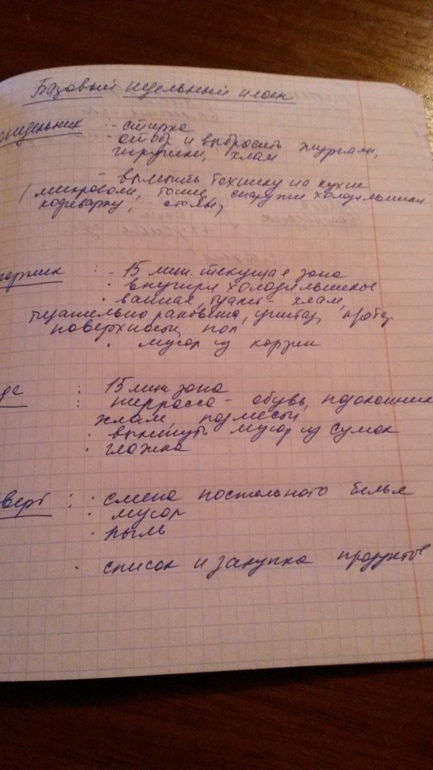 Базовый недельный план
понедельник : - стирка
- отобр и выбросить журналы,
игрушки, хлам
- вымыть технику на кухне
(микроволн, тостер, снаружи холодильники
кофеварку, столы)
торник : - 15 мин. текущая зона
· внутри холодильника
· ванная, туалет - хлам,
тщательно раковина, унитаз, протер
поверхности, пол
· мусор из корзин
де : 15 мин. зона
терраса - обувь, подоконник
хлам, подмести
· выкинуть мусор из сумок
· глажка
верг : · смена постельного белья
· мусор
· пыль
· список и закупка продуктов